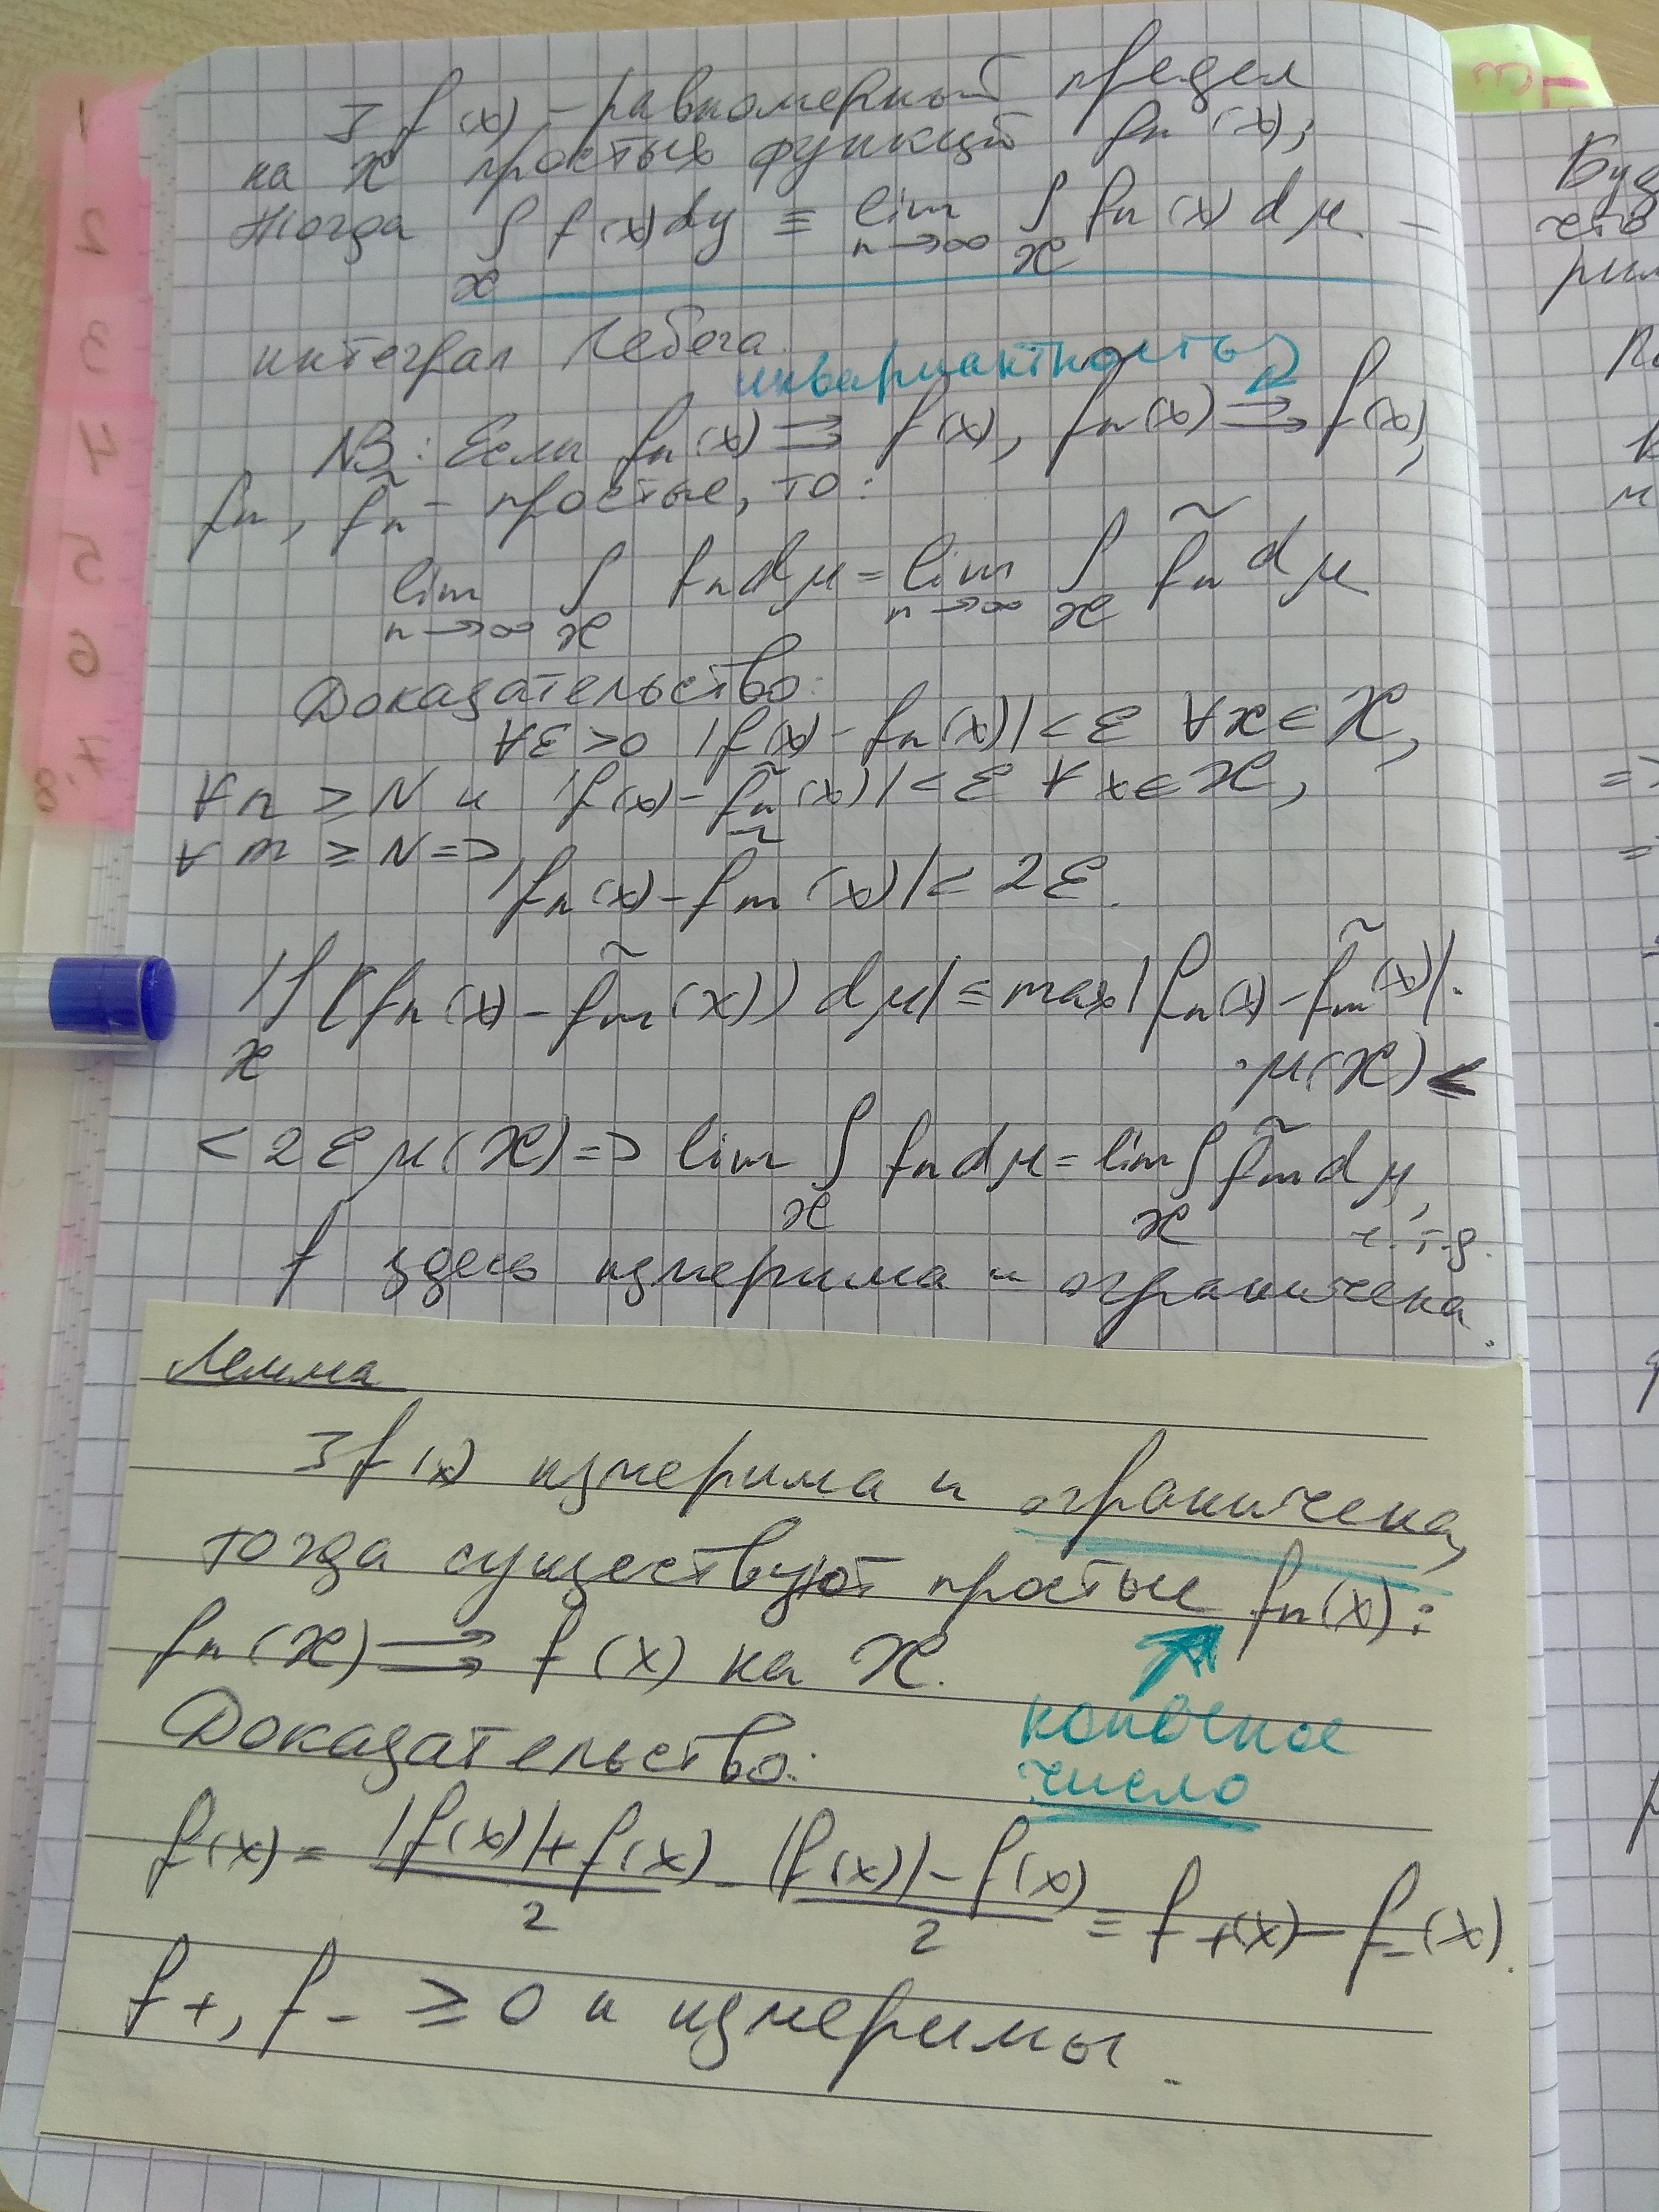 Ӡ f(x) – равномерный предел
на 𝒳 простых функций fₙ(x),
тогда ∫_𝒳 f(x)dμ ≡ lim_{n→∞} ∫_𝒳 fₙ(x)dμ –
интеграл Лебега.
инвариантность
NB: Если fₙ(x) ⇉ f(x), fₙ(x) ⇉ f(x),
fₙ, f̃ₙ – простые, то:
lim_{n→∞} ∫_𝒳 fₙdμ = lim_{n→∞} ∫_𝒳 f̃ₙdμ
Доказательство:
∀ε<0 |f(x) - fₙ(x)|<ε ∀x∈𝒳,
∀n ≥ N и |f(x) - f̃ₙ(x)|<ε ∀x∈𝒳,
∀m ≥ N =>
|fₙ(x) - f̃ₘ(x)|< 2ε.
|∫_𝒳 (fₙ(x) - f̃ₘ(x))dμ| ≤ max|fₙ(x) - f̃ₘ(x)|·
·μ(𝒳) <
< 2εμ(𝒳) => lim ∫_𝒳 fₙdμ = lim ∫_𝒳 f̃ₘdμ,
ч.т.д.
f здесь измерима и ограничена.
Лемма
Ӡ f(x) измерима и ограничена,
тогда существуют простые fₙ(x):
fₙ(𝒳) ⇉ f(x) на 𝒳.
конечное
число
Доказательство:
f(x) = (|f(x)|+f(x))/2 - (|f(x)|-f(x))/2 = f₊(x) - f₋(x).
f₊, f₋ ≥ 0 и измеримы.
1
2
3
4
5
6
7,8